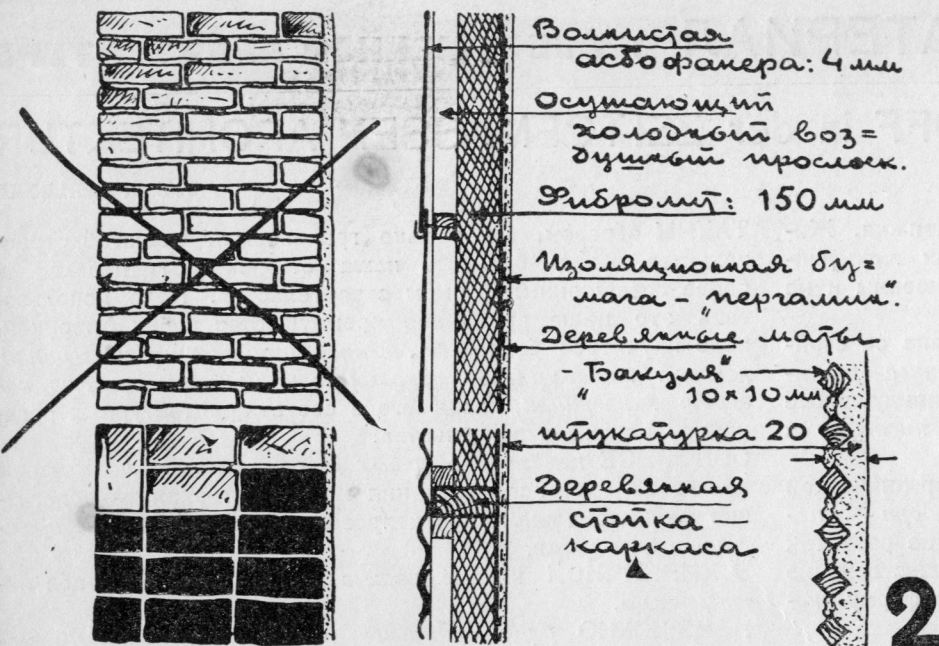 Волнистая
асбофанера: 4 мм
Осушающий
холодный воз=
душный прослоек.
Фибролит: 150 мм
Изоляционная бу=
мага – "пергамин".
Деревянные маты
– "Бакуля"
10×10 мм
штукатурка 20
Деревянная
стойка –
каркаса
2